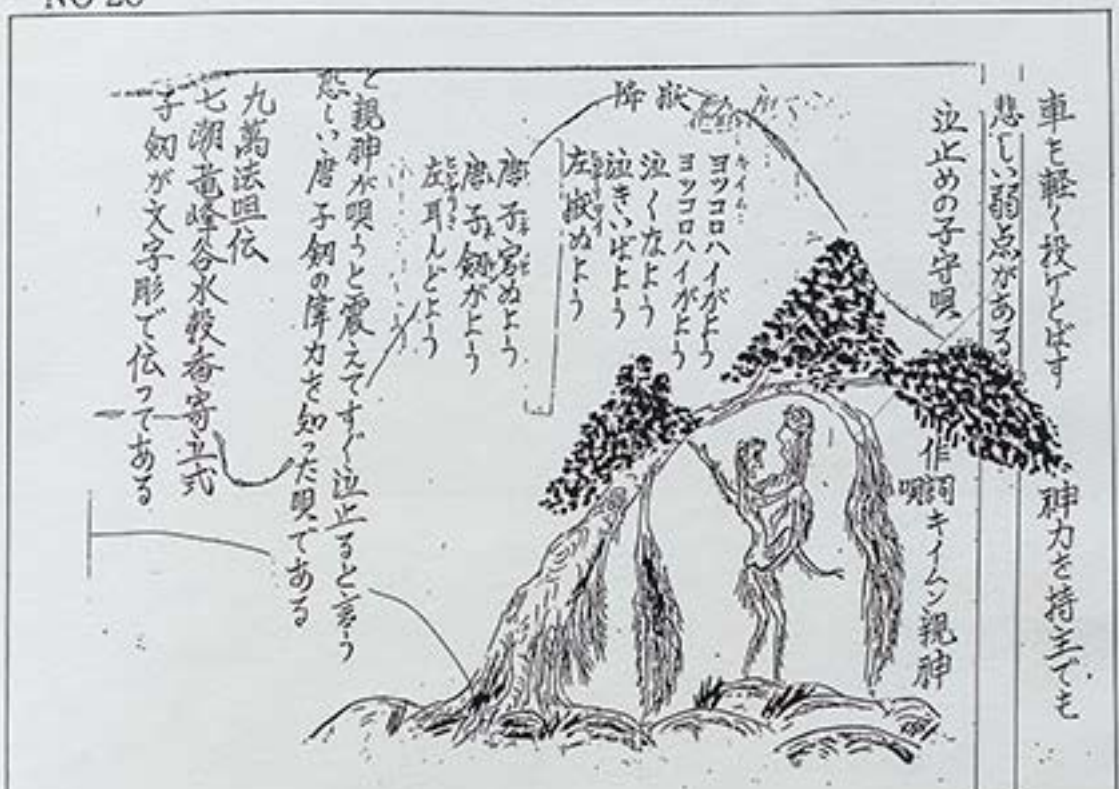 NO 20
車を軽く投げとばす 神力を持主でも
悲しい弱点がある
泣止めの子守唄 作詞 キイムン親神
唄
ヨツコロハイがよう
ヨツコロハイがよう
泣くなよう
泣きいばよう
左嶽ぬよう
唐子宮ぬよう
唐子剱がよう
左耳んどよう
と親神が唄うと震えてすぐ泣止ると言う
悲しい唐子剱の偉力を知った唄である
九萬法咀伝
七潮竜峰谷水穀香寄立式
子剱が文字形で伝ってある